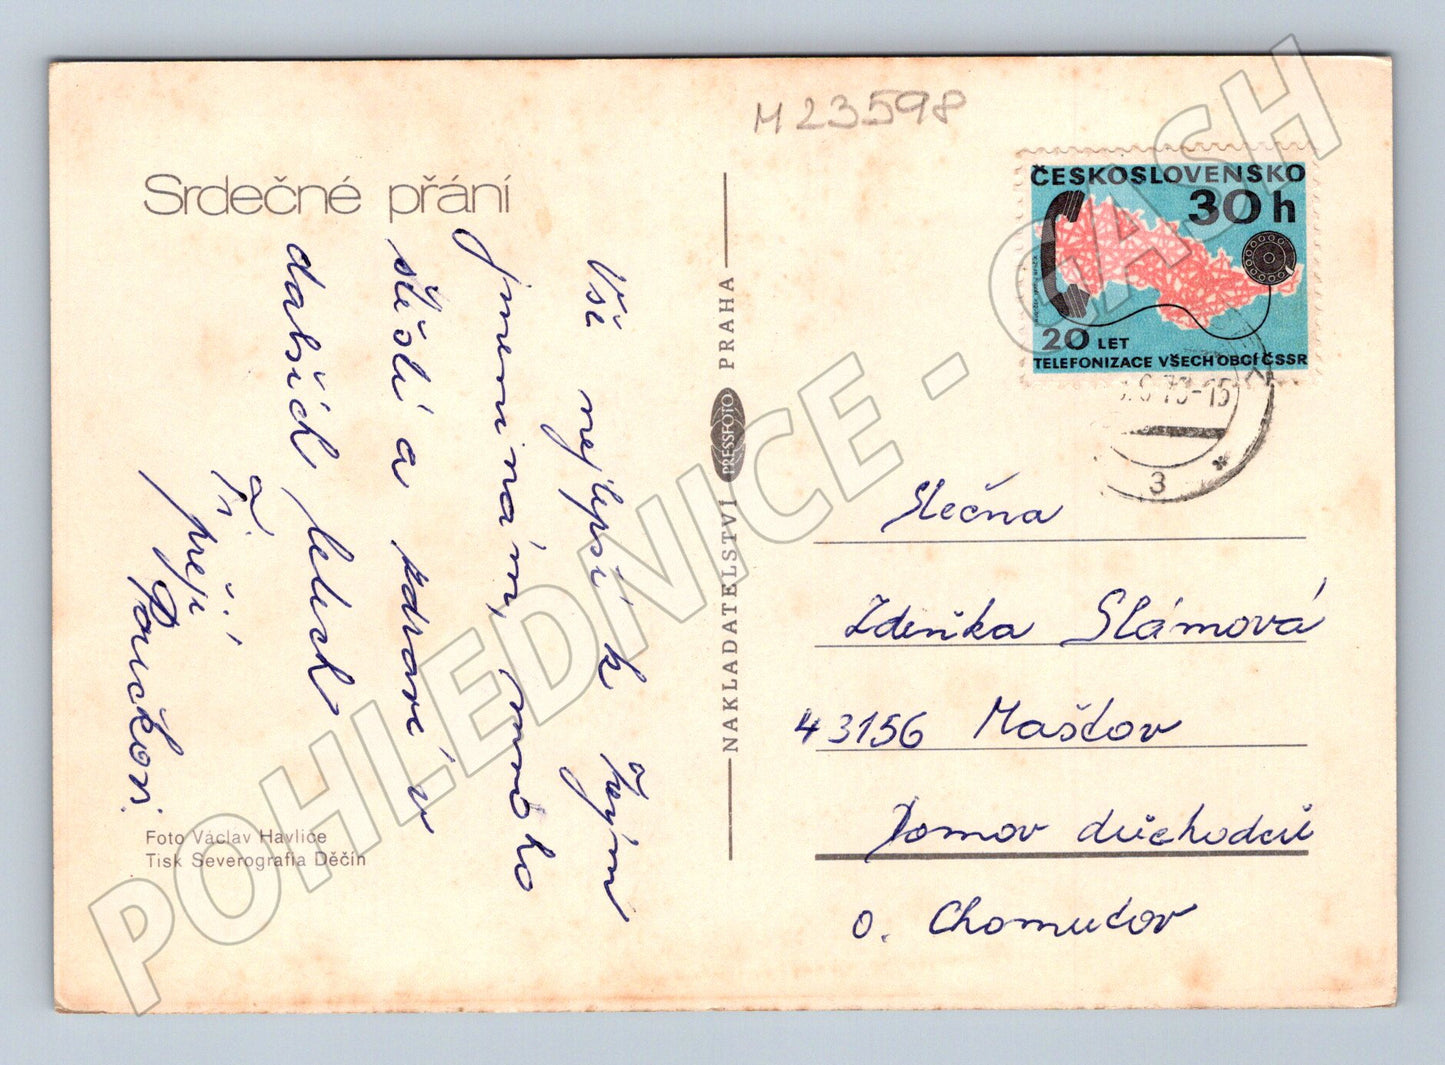 M 23598
Srdečné přání
Vše nejlepší k Tvým
jmeninám, mnoho
štěstí a zdraví v
dalších letech
Ti přejí
Foto Václav Havlice
Tisk Severografia Děčín
NAKLADATELSTVÍ PRESSFOTO PRAHA
ČESKOSLOVENSKO
30h
20 LET
TELEFONIZACE VŠECH OBCÍ ČSSR
73-15
3
*
Slečna
Zdeňka Slámová
43156 Mašťov
Domov důchodců
o. Chomutov
POHLEDNICE - CASH